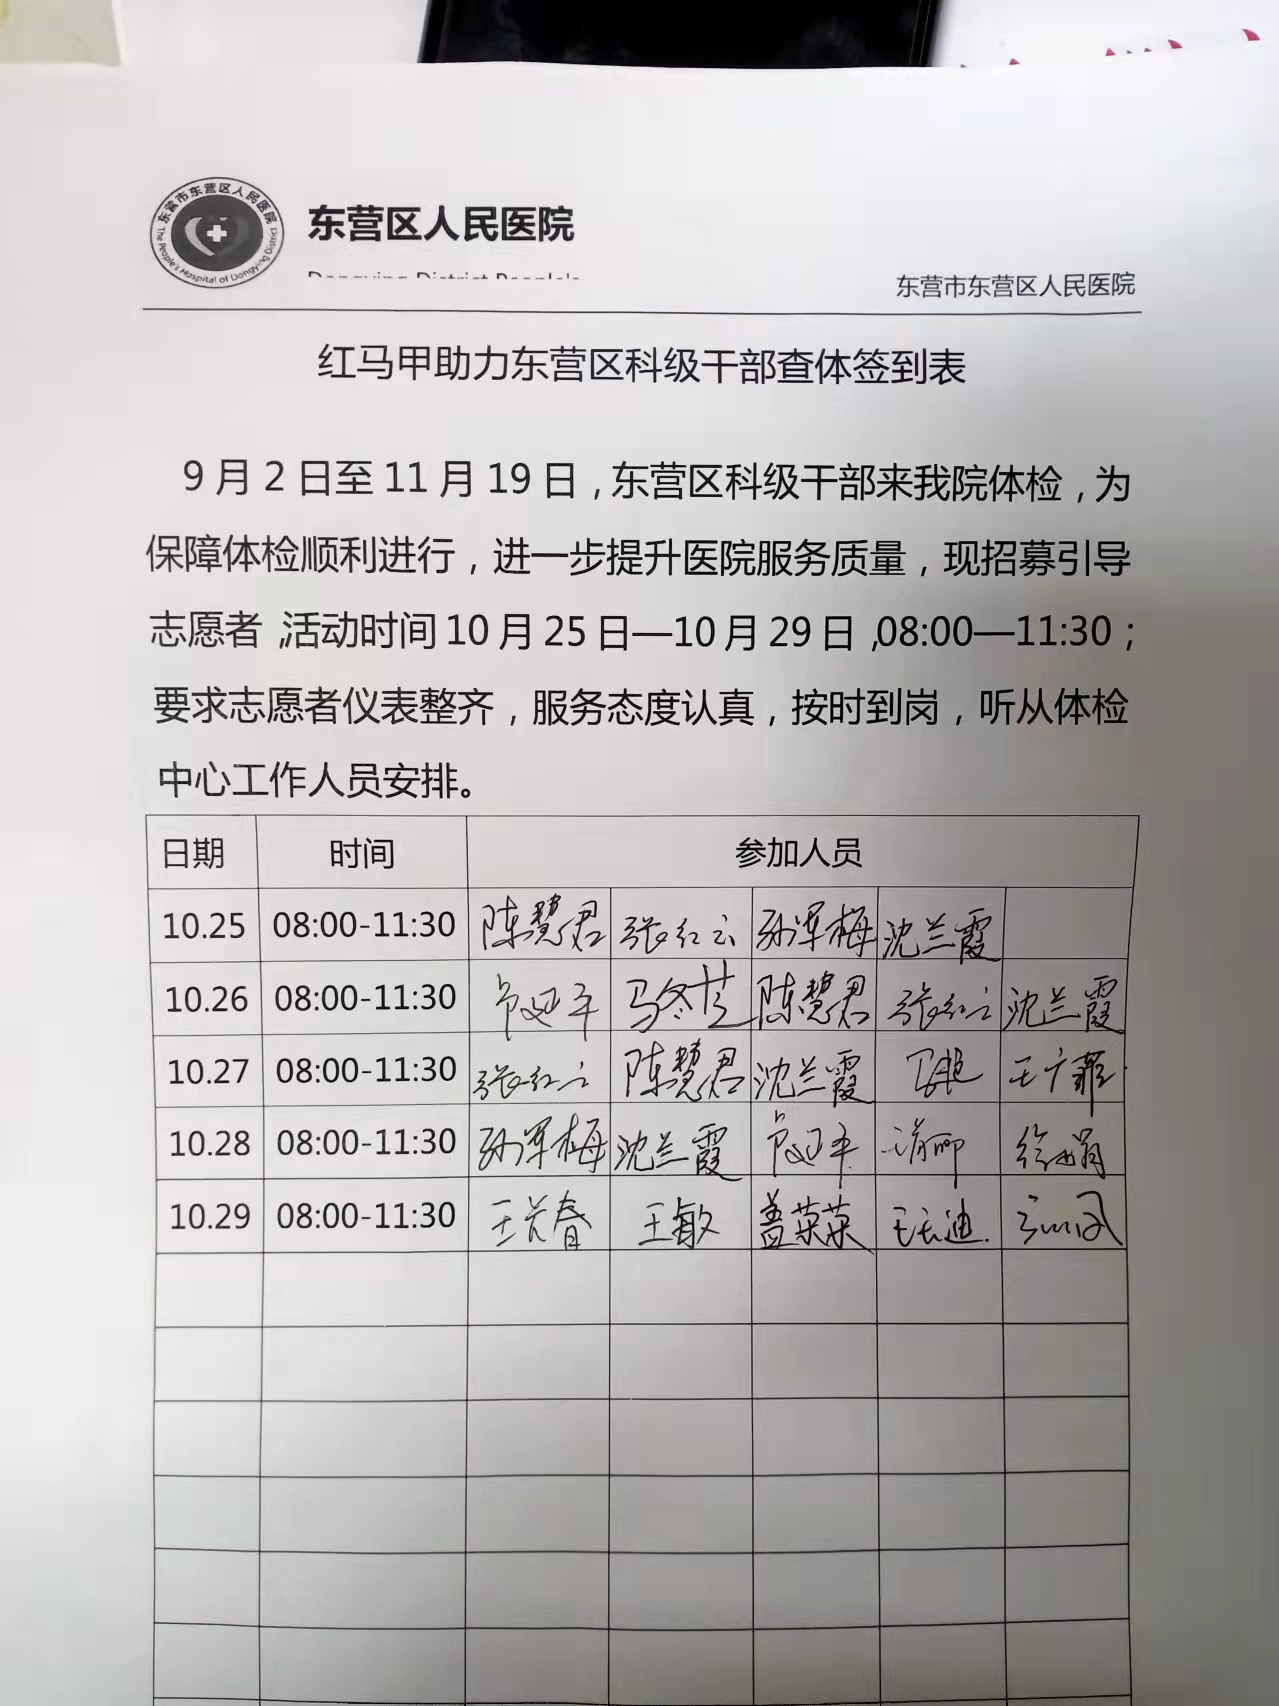 东营市东营区人民医院
The People's Hospital of Dongying District
东营区人民医院
Dongying District People's
东营市东营区人民医院
红马甲助力东营区科级干部查体签到表
9月2日至11月19日，东营区科级干部来我院体检，为
保障体检顺利进行，进一步提升医院服务质量，现招募引导
志愿者，活动时间10月25日—10月29日，08:00—11:30；
要求志愿者仪表整齐，服务态度认真，按时到岗，听从体检
中心工作人员安排。
日期 时间 参加人员
10.25 08:00-11:30 陈慧君 张红云 孙军梅 沈兰霞
10.26 08:00-11:30 马冬芝 陈慧君 张红云 沈兰霞
10.27 08:00-11:30 张红云 陈慧君 沈兰霞 王广霞
10.28 08:00-11:30 孙军梅 沈兰霞
10.29 08:00-11:30 王敏 盖荣荣